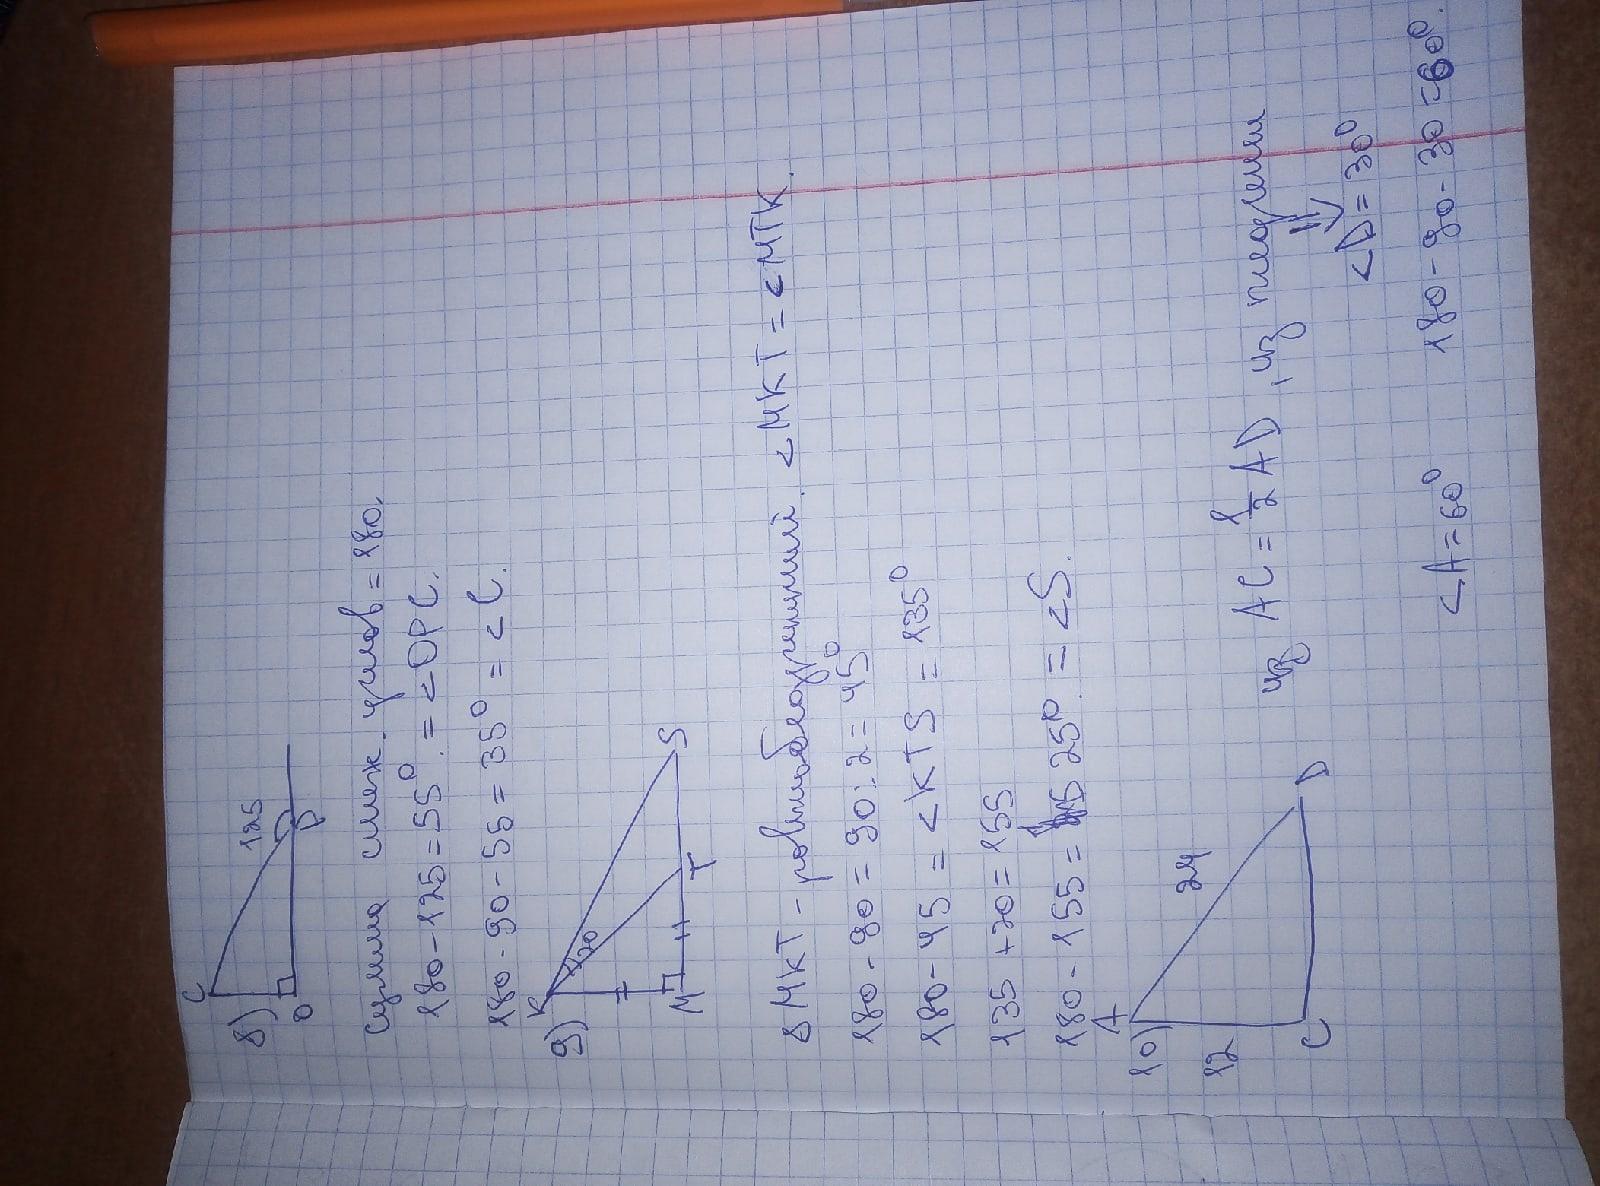 8)
C
125
O
P
Сумма смеж. углов = 180.
180-125=55° = <OPC.
180-90-55=35° = <C.
9)
K
20
M
T
S
Δ MKT - равнобедренный. <MKT = <MTK.
180-90 = 90:2 = 45°
180-45 = <KTS = 135°
135+20=155
180-155= 25° = <S.
10)
A
12
24
C
D
из AC = 1/2 AD , из
<D = 30°
<A = 60° 180-90-30=60°.